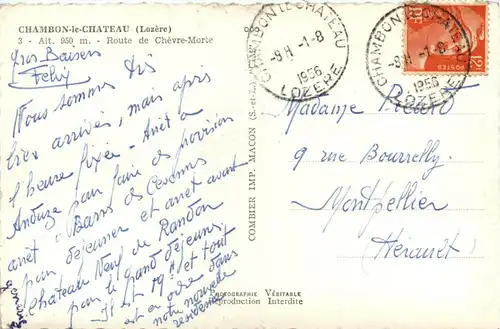 CHAMBON-le-CHATEAU (Lozère)
3 - Alt. 950 m. - Route de Chèvre-Morte
Gros Baisers
Nous sommes très
bien arrivés, mais après
l'heure fixée - Arrêt à
Anduze pour faire des provisions
arrêt "Barre des Cévennes
pour déjeuner et arrêt avant
Château Neuf de Randon
pour le grand déjeuner,
- Il est 19H et tout
est en ordre dans
notre nouvelle
résidence
COMBIER IMP. MACON (S.-et-L.)
PHOTOGRAPHIE VÉRITABLE
Reproduction Interdite
CHAMBON LE CHATEAU
-8H -1-8
1956
LOZERE
CHAMBON LE CHATEAU
-8H -1-8
1956
LOZERE
POSTES
12F
Madame
9 rue Bourrelly
Montpellier
Hérault